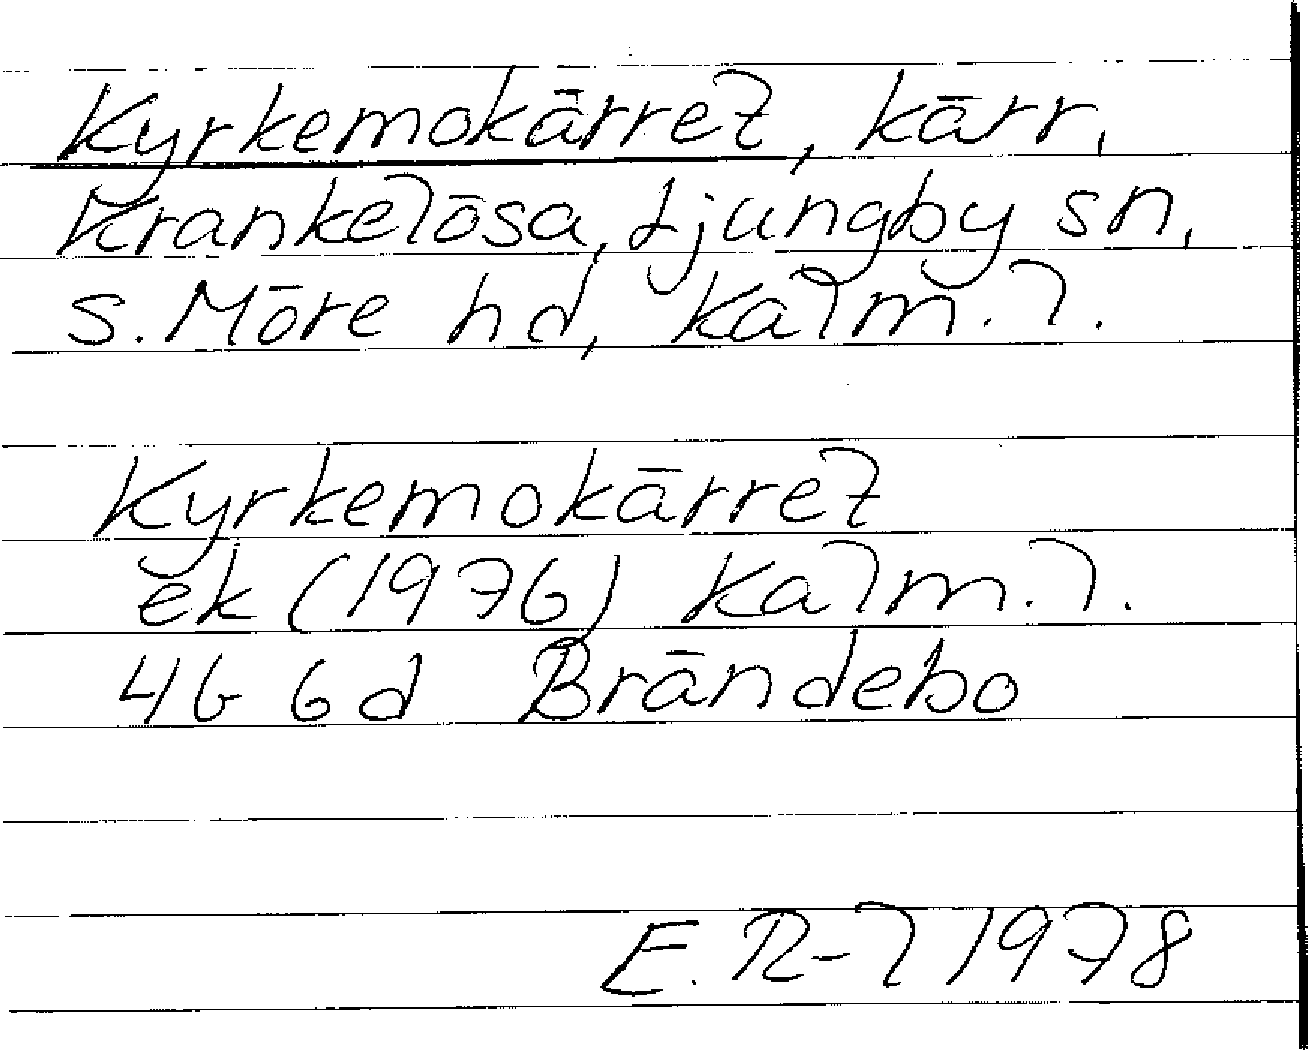 Kyrkemokärret, kärr,
Krankelösa, Ljungby sn,
S. Möre hd, Kalm. l.
Kyrkemokärret
ek (1976) Kalm. l.
4G 6d Brändebo
E. R-l 1978